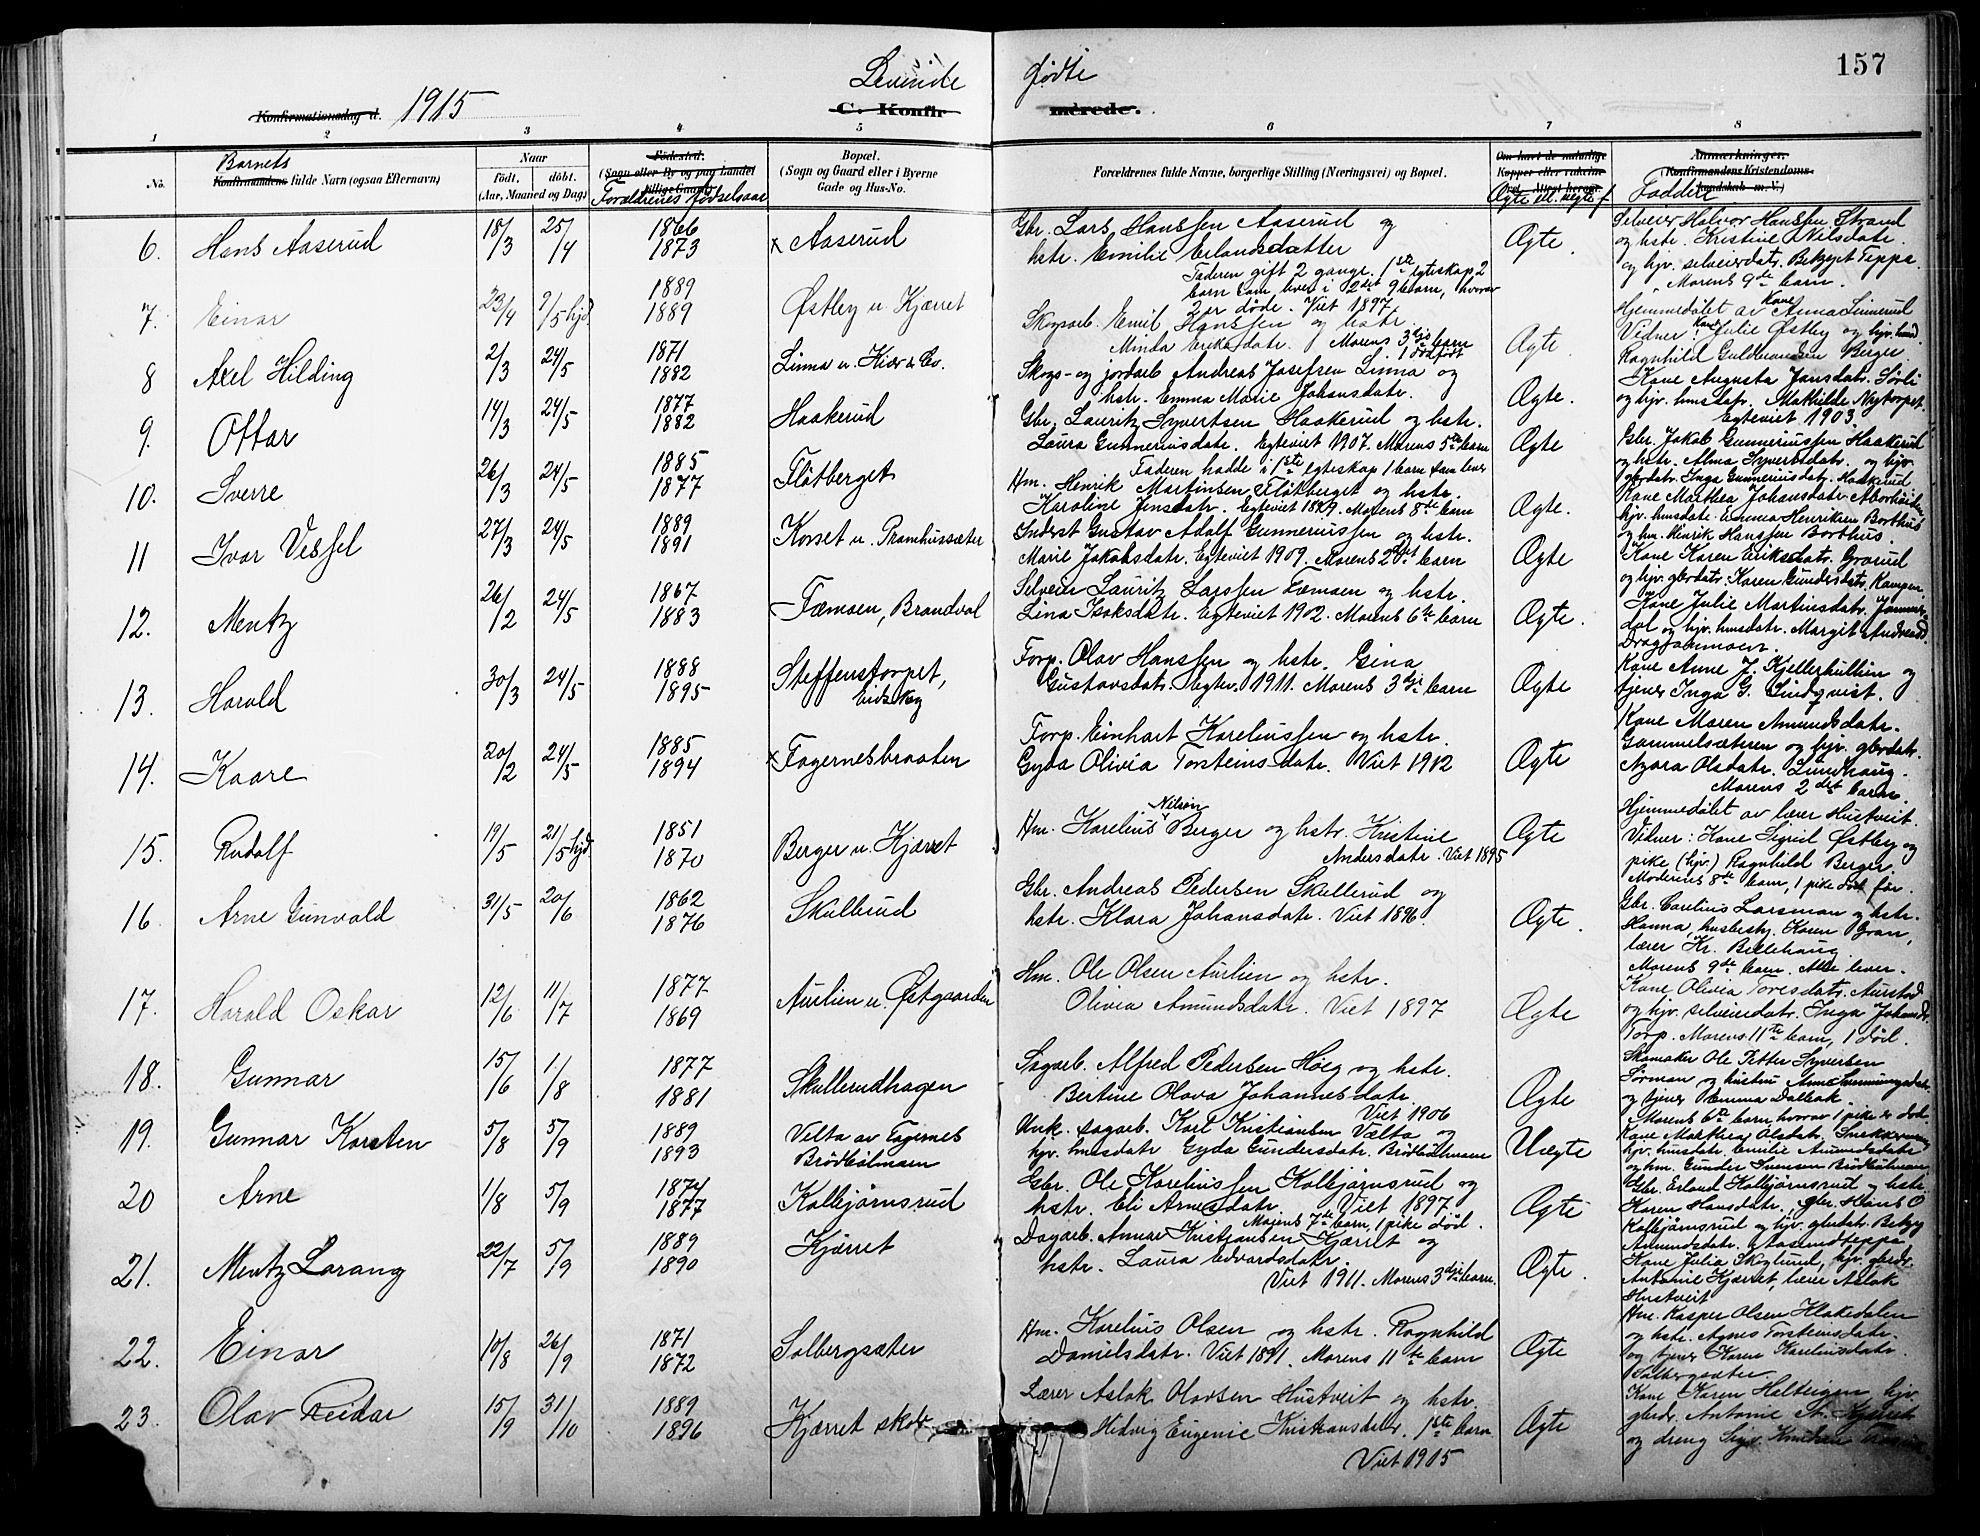 157
Levende Födte
Konfirmationsdag d. 1915
C. Konfirmerede.
1 2 3 4 5 6 7 8
No.
Barnets
Konfirmandens fulde Navn (ogsaa Efternavn)
Naar
födt. döbt.
(Aar, Maaned og Dag)
Födested.
(Sogn eller By og paa Landet tillige Gaard)
Forældrenes fødselsaar
Bopæl.
(Sogn og Gaard eller i Byerne
Gade og Hus-No.
Forældrenes fulde Navne, borgerlige Stilling (Næringsvei) og Bopæl.
Om havt de naturlige
Kopper eller vakcineret.
Ægte ell. uegte f.
Anmærkninger.
(Konfirmandens Kristendomskundskab m. V.)
Faddere
6. Hans Aaserud 18/3 25/4 1866 1873 x Aaserud
Gbr. Lars Hanssen Aaserud og
hstr. Emilie Erlandsdatter
Faderen gift 2 gange. 1ste egteskap 2
barn som lever i 2det 9 barn, hvorav
2 er døde. Viet 1897
Ægte.
Selveier Halvor Hanssen Strand
og hstr. Kristine Nilsdatr.
og hjv. selveierdatr. Betzyet Teppa.
Morens 9de barn.
7. Einar 23/4 9/5 hjd. 1889 1889 Østby u Kjærret
Skogsarb. Emil Hanssen og hstr.
Minda Eriksdatr. Morens 3dje barn
1 dødfødt
Ægte.
Hjemmedøbt av Kone Anna Linnerud
Vidner Kone Julie Østby og hjv.
Ragnhild Guldbrandsen Berger
8 Axel Hilding 2/3 24/5 1871 1882 Linna u. Kiær & Co.
Skogs- og jordarb Andreas Josefsen Linna og
hstr. Emma Marie Johansdatr.
Ægte.
Kone Augusta Jansdatr. Sørli
og hjv. hmsdatr. Mathilde Nytorpet.
Egteviet 1903.
9. Ottar 14/3 24/5 1877 1882 Haakerud
Gbr. Lauritz Syvertsen Haakerud og hstr.
Laura Gunneriusdatr. Egteviet 1907. Morens 5te barn
Ægte
Gbr. Jakob Gunneriussen Haakerud
og hstr. Alma Syvertsdatr. og hjv.
gbrdatr. Inga Gunneriusdatr. Haakerud
10. Sverre 26/3 24/5 1885 1877 Flötberget
Faderen hadde i 1ste egteskap 1 barn som lever
Hm. Henrik Martinsen Flötberget og hstr.
Karoline Jensdatr. Egteviet 1899. Morens 8de barn
Ægte.
Kone Marthea Johansdatr.
hjv. hmsdatr. Emma Henriksen Borthus
og hm. Henrik Hanssen Borthus.
11 Ivar Vessel 27/3 24/5 1889 1891 Korset u. Pramhussæter
Inderst Gustav Adolf Gunneriussen og hstr.
Marie Jakobsdatr. Egteviet 1909. Morens 2det barn
Ægte
Kone Karen Eriksdatr. Grorud
og hjv. gbrdatr. Karen Gundersdatr. Kamgen.
12. Mentz 26/2 24/5 1867 1883 Fæmoen, Brandval
Selveier Lauritz Larssen Fæmoen og hstr.
Lina Isaksdatr. Egteviet 1902. Morens 6te barn
Ægte.
Kone Julie Martinsdatr.
og hjv. hmsdatr. Margit
13. Harald 30/3 24/5 1888 1895 Steffenstorpet,
Eidskog
Forp. Olav Hanssen og hstr. Gina
Gustavsdatr. Egtev. 1911. Morens 3dje barn
Ægte
Kone Anne J. Kjellerhullien og
tjener Inga G. Lindqvist.
14. Kaare 20/2 24/5 1885 1894 x Fagernesbraaten
Forp. Einhart Kareliussen og hstr.
Gyda Olivia Torsteinsdatr. Viet 1912
Ægte
Kone Maren Amundsdatr.
Gammelsæteren og hjv. gbrdatr.
Azora Olsdatr. Lundhaug.
Morens 2det barn
15. Rudolf 19/5 21/5 hjd 1851 1870 Berger u. Kjærret
Hm. Karelius Nilsen Berger og hstr. Kristine
Andersdatr. Viet 1895
Ægte
Hjemmedøbt av lærer Hustveit.
Vidner: Kone Sigrid Østby og
pike (hjv.) Ragnhild Berger.
Moderens 8de barn, 1 pike död før.
16. Arne Gunvald 31/5 20/6 1862 1876 Skullerud
Gbr. Andreas Pedersen Skullerud og
hstr. Klara Johansdatr. Viet 1896.
Ægte.
Gbr. Carelius Larsmon og hstr.
Hanna, husbesty. Karen Gran,
lærer Kr. Bellehaug
Morens 9de barn. Alle lever.
17. Harald Oskar 12/6 11/7 1877 1869 Aurlien u. Østgaarden
Hm. Ole Olsen Aurlien og hstr.
Olivia Amundsdatr. Viet 1897
Ægte
Kone Olivia Toresdatr. Aurstad
og hjv. selveierdatr. Inga Johansdr.
Torp. Morens 11te barn, 1 död.
18. Gunnar 15/6 1/8 1877 1881 Skullerudhagen
Sagarb. Alfred Pedersen Höeg og hstr.
Bertine Olava Johannesdatr.
Viet 1906
Ægte
Skomaker Ole Petter Syversen
Sörmon og hustru Anne
og tjener Emma Dalbak.
Morens 6te barn, hvorav 1 pike er död.
19. Gunnar Karsten 5/8 5/9 1889 1893 Velta av Fagernes
Brödbölmoen
Unk. sagarb. Karl Kristiansen Vælta og
hjv. hmsdatr Gyda Gundersdatr. Brödbölmoen
Uægte
Kone Marthea Olsdatr.
hjv. hmsdatr. Emilie Amundsdatr
og hm. Gunder Svensen Brödbölmoen
20 Arne 1/8 5/9 1874 1877 Kolbjørnsrud
Gbr. Ole Kareliussen Kolbjørnsrud og
hstr. Eli Arnesdatr. Viet 1897.
Morens 7de barn, 1 pike död.
Ægte
Gbr. Erland Kolbjörnsrud og hstr.
Karen Hansdatr., gbr. Hans O
Kolbjörnsrud og hjv. gbrdatr. Betzy
Amundsdatr. Aaserudteppa.
21. Mentz Lorang 22/7 5/9 1889 1890 Kjærret
Dagarb. Annar Kristiansen Kjærret og
hstr. Laura Edvardsdatr.
Viet 1911. Morens 3dje barn.
Ægte.
Kone Julia Skoglund, hjv. gbrdr.
Antonie Kjærret, lærer Aslak
Hustveit
22. Einar 10/8 26/9 1871 1872 Solbergsæter
Hm. Karelius Olsen og hstr. Ragnhild
Danielsdatr. Viet 1891. Morens 11te barn
Ægte
Hm. Kasper Olsen Klakedalen
og hstr. Agnes Torsteinsdatr.
og tjener Karen Kareliusdatr.
Solbergsæter
23. Olav Reidar 15/9 31/10 1889 1896 Kjærret skole
Lærer Aslak Olavsen Hustveit og hstr.
Hedvig Eugenie Kristiansdatr. 1ste barn
Viet 1915
Ægte
Kone Karen Helteigen, hjv.
gbrdr. Antonie St. Kjærret
og dreng Sigv. Knutsen